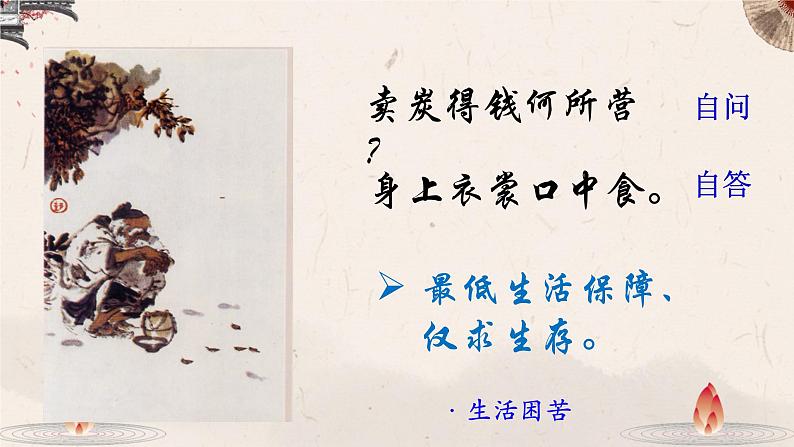 卖炭得钱何所营
?
自问
身上衣裳口中食。
自答
➢ 最低生活保障、
仅求生存。
· 生活困苦